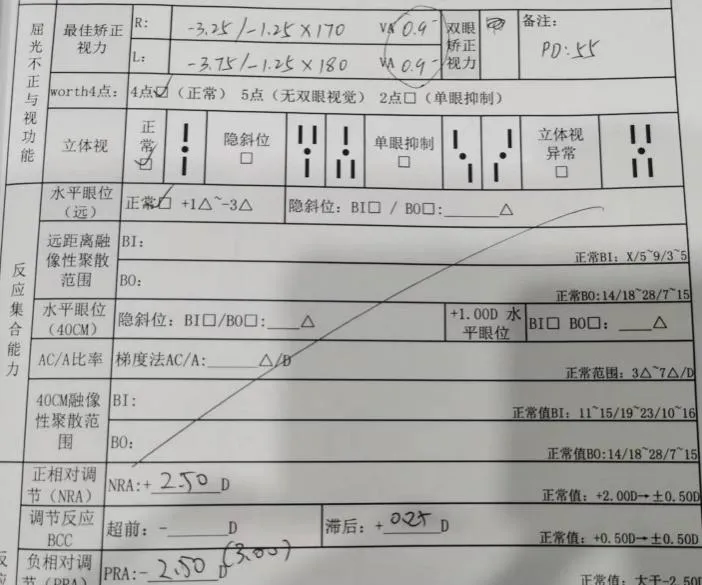 屈光不正与视功能
最佳矫正视力
R: -3.25/-1.25×170 VA 0.9⁻
L: -3.75/-1.25×180 VA 0.9⁻
双眼矫正视力
备注:
PD:55
worth4点: 4点☑(正常) 5点(无双眼视觉) 2点□(单眼抑制)
立体视 正常☑ 隐斜位□ 单眼抑制□ 立体视异常□
反应集合能力
水平眼位(远) 正常☑ +1△~-3△ 隐斜位: BI□ / BO□:______△
远距离融像性聚散范围 BI: 正常BI: X/5~9/3~5
BO: 正常BO:14/18~28/7~15
水平眼位(40CM) 隐斜位: BI□/BO□:____△ +1.00D 水平眼位 BI□ BO□: ____△
AC/A比率 梯度法AC/A:______△/D 正常范围: 3△~7△/D
40CM融像性聚散范围 BI: 正常值BI: 11~15/19~23/10~16
BO: 正常值BO:14/18~28/7~15
正相对调节(NRA) NRA:+ 2.50 D 正常值: +2.00D→±0.50D
调节反应BCC 超前: -______D 滞后: + 0.25 D 正常值: +0.50D→±0.50D
负相对调 PRA:- 2.50 D (3.00) 正常值: 大于-2.50D